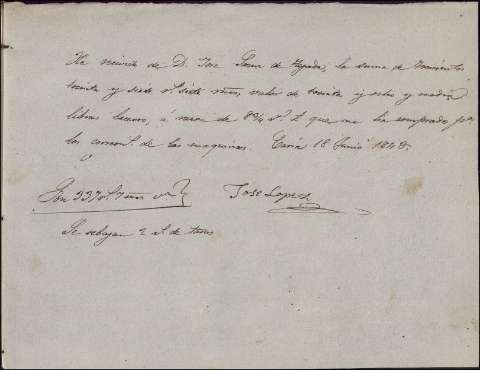 He recibido de D. Jose de la suma de trescientos
treinta y siete r.s siete mrs, valor de treinta y ocho y media
libras á razon de 8¾ r.s £ que me ha comprado p.a
los de las maquinas. 18 Junio 1848.
Son 337 r.s 7 mrs
Jose Lopez
Se rebajan 2 de